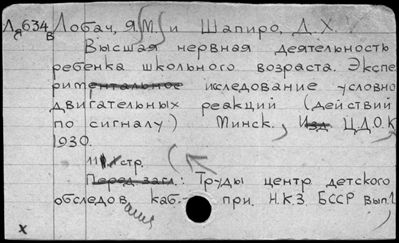 Ля634в Лобач, Я. М. и Шапиро, Д. Х.
Высшая нервная деятельность
ребенка школьного возраста. Экспе
риментальное иследование условно
двигательных реакций (действий
по сигналу) Минск, Изд. Ц.Д.О.К
1930.
111 стр.
Перед загл.: Труды центр детского
обследования каб. при. Н.КЗ. БССР Вып. 1
x